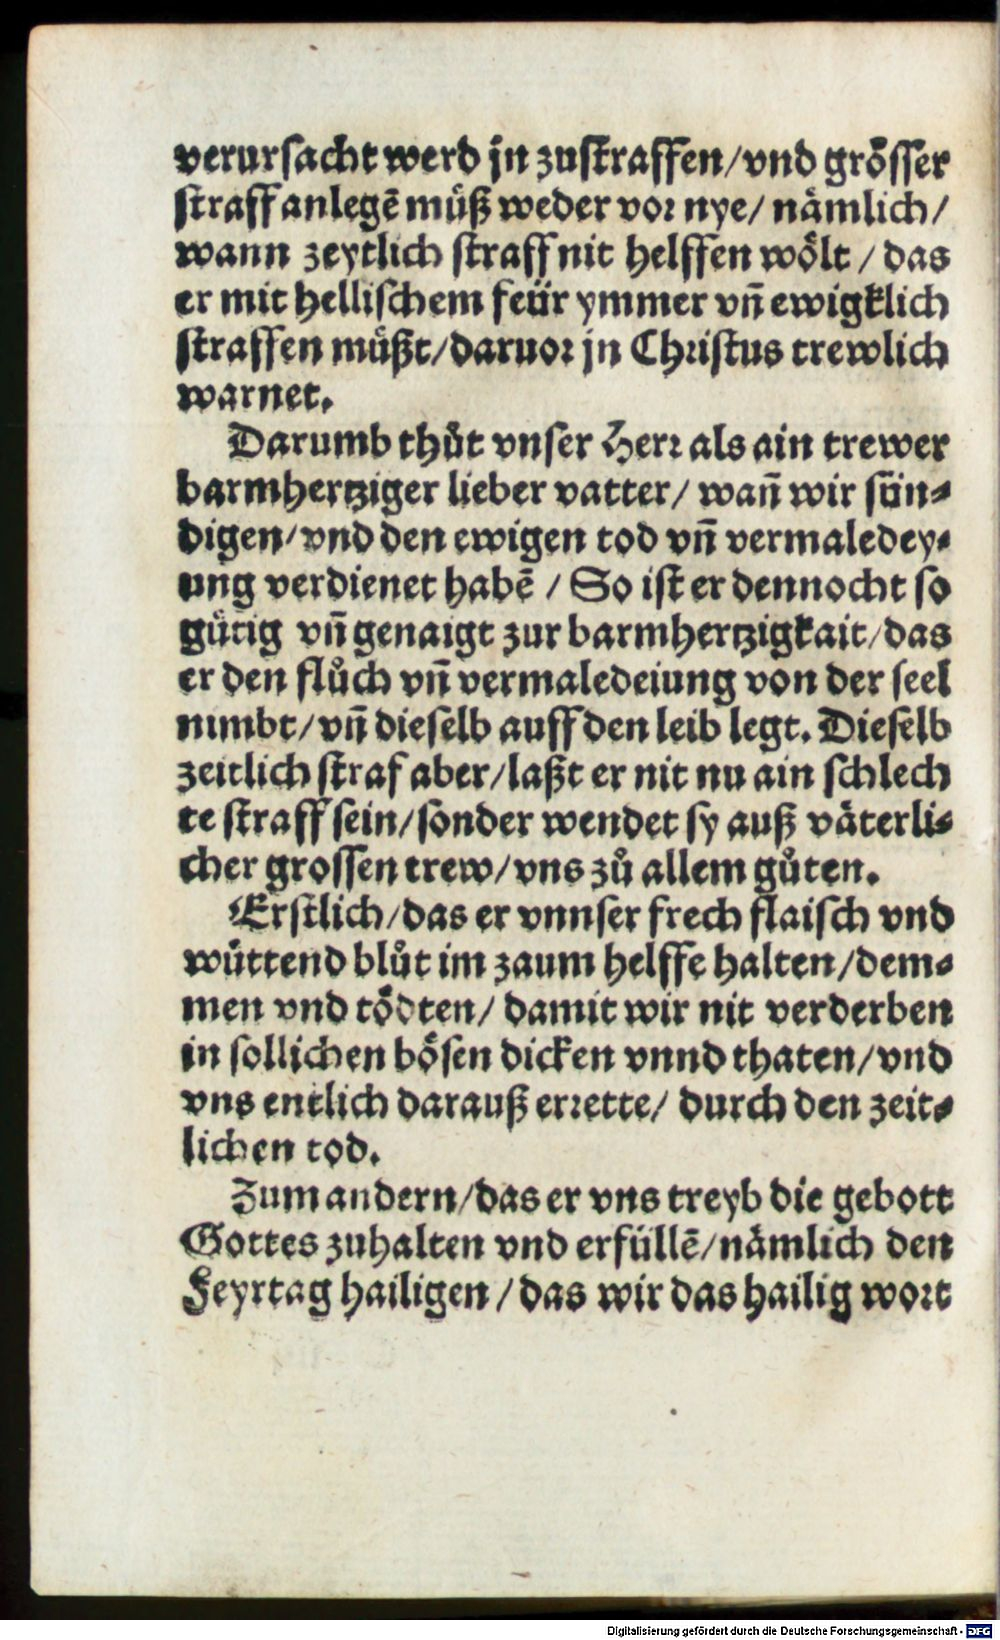 verursacht werd jn zustraffen/vnd grösser
straff anlegē můß weder vor nye/ nämlich/
wann zeytlich straff nit helffen wölt / das
er mit hellischem feür ymmer vñ ewigklich
straffen můßt/daruor jn Christus trewlich
warnet.
Darumb thůt vnser Herr als ain trewer
barmhertziger lieber vatter/ wañ wir sün-
digen/vnd den ewigen tod vñ vermaledey-
ung verdienet habē / So ist er dennocht so
gütig vñ genaigt zur barmhertzigkait/das
er den flůch vñ vermaledeiung von der seel
nimbt/vñ dieselb auff den leib legt. Dieselb
zeitlich straf aber/laßt er nit nu ain schlech
te straff sein/sonder wendet sy auß väterli-
cher grossen trew/vns zů allem gůten.
Erstlich/das er vnnser frech flaisch vnd
wüttend blůt im zaum helffe halten/dem-
men vnd tödten/ damit wir nit verderben
in sollichen bösen dicken vnnd thaten/vnd
vns entlich darauß errette/ durch den zeit-
lichen tod.
Zum andern/das er vns treyb die gebott
Gottes zuhalten vnd erfüllē/nämlich den
Feyrtag hailigen/das wir das hailig wort
Digitalisierung gefördert durch die Deutsche Forschungsgemeinschaft - DFG